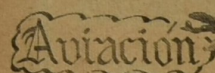 Aviación